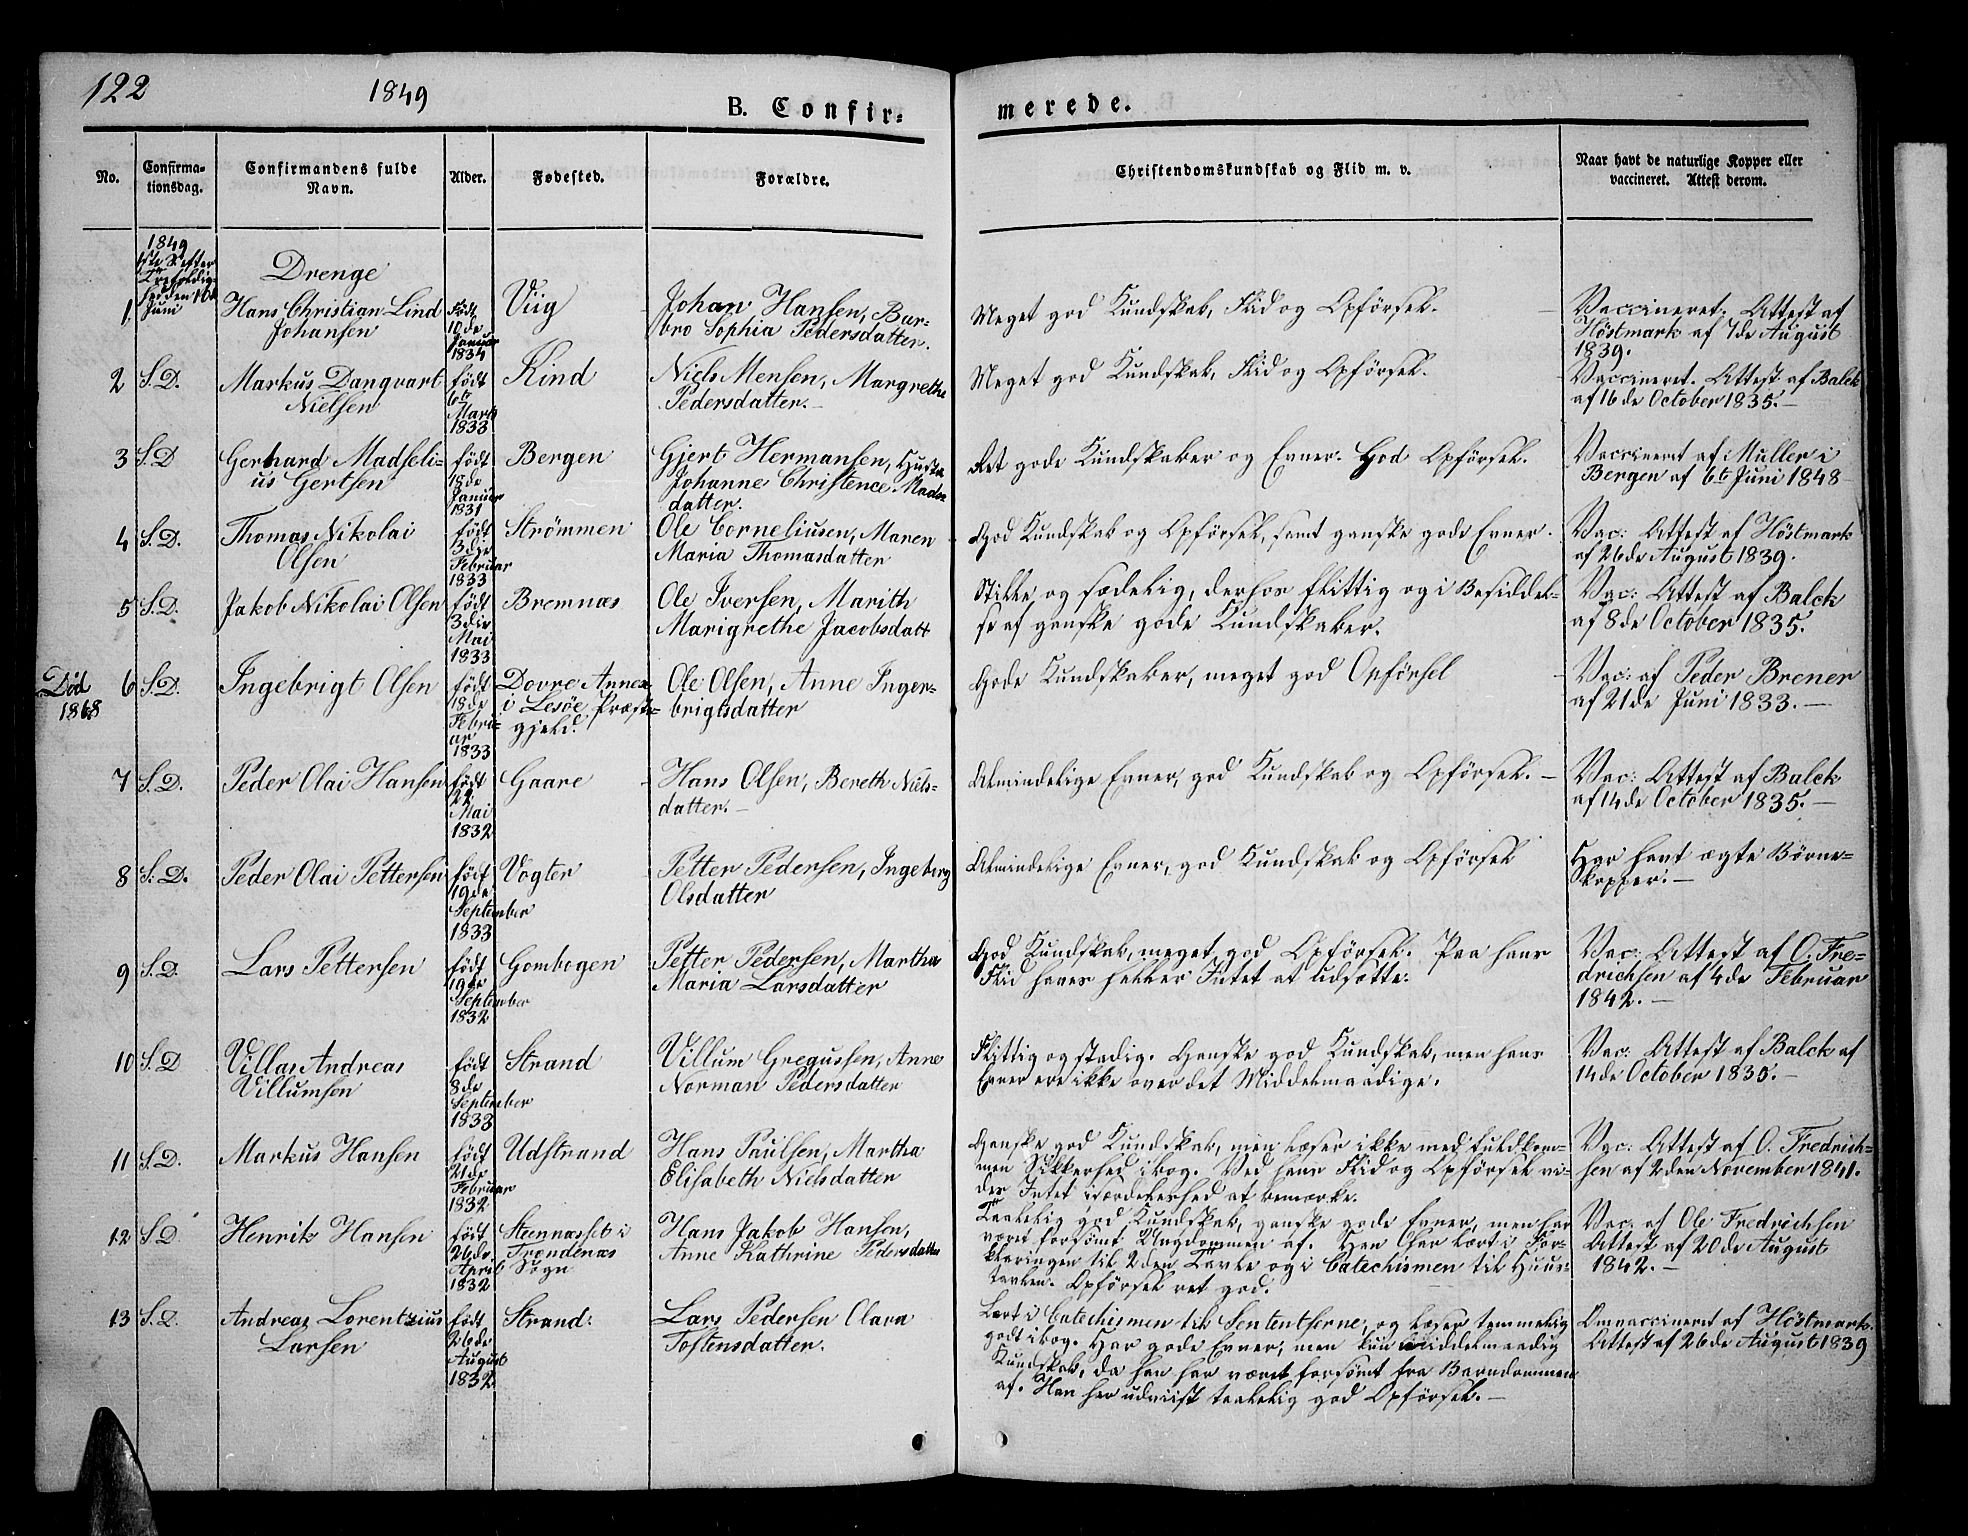 122
1849
B. Confir=
merede.
No.
Confirma-
tionsdag.
Confirmandens fulde
Navn.
Alder.
Fødested.
Forældre.
Christendomskundskab og Flid m. v.
Naar havt de naturlige Kopper eller
vaccineret. Attest derom.
1849
1ste S. efter
Trefoldig-
heden 10de
Juni
Drenge
1. Hans Christian Lind
Johansen
Født
10de
Januar
1834
Viig
Johan Hansen, Bar-
bro Sophia Pedersdatter.
Meget god Kundskab, Flid og Opførsel.
Vaccineret. Attest af
Höstmark af 7de August
1839.
2 S. D. Markus Danqvart
Nielsen
födt
6te
Marts
1833
Kind
Niels Mensen, Margrethe
Pedersdatter.
Meget god Kundskab, Flid og Opførsel.
Vaccineret. Attest af Balck
af 16de October 1835.
3 S. D Gerhard Madseli-
us Gertsen
födt
18de
Januar
1831
Bergen
Gjert Hermansen, Hustru
Johanne Christence Mads-
datter.
Ret gode Kundskaber og Evner. God Opførsel.
Vaccineret af Muller i
Bergen af 6te Juni 1848
4 S. D. Thomas Nikolai
Olsen
födt
3die
Februar
1833
Strömmen
Ole Corneliusen, Maren
Maria Thomasdatter
God Kundskab og Opførsel, samt ganske gode Evner.
Vac: Attest af Höstmark
af 26de August 1839.
5 S. D. Jakob Nikolai Olsen
födt
3die
Mai
1833
Bremnæs
Ole Iversen, Marith
Marigrethe Jacobsdatt
Stille og sædelig, derhos flittig og i Besiddel-
se af ganske gode Kundskaber.
Vac: Attest af Balck
af 8de October 1835.
Död
1868
6 S. D. Ingebrigt Olsen
födt
18de
Febru-
ar
1833
Dovre Annex
i Lesöe Præste-
gjeld.
Ole Olsen, Anne Inger-
brigtsdatter
Gode Kundskaber, meget god Opførsel
Vac: af Peder Brener
af 21de Juni 1833.
7 S. D. Peder Olai Hansen
födt
22
Mai
1832
Gaare
Hans Olsen, Bereth Niels-
datter.
Almindelige Evner, god Kundskab og Opførsel.
Vac: Attest af Balck
af 14de October 1835.
8 S. D. Peder Olai Pettersen
födt
19de
September
1833
Vogter
Petter Pedersen, Ingeborg
Olsdatter
Almindelige Evner, god Kundskab og Opførsel
Har havt ægte Børne=
kopper.
9 S. D. Lars Pettersen
födt
19de
September
1832
Gombogen
Petter Pedersen, Martha
Maria Larsdatter
God Kundskab, meget god Opførsel. Paa hans
Flid haves heller Intet at udsætte.
Vac: Attest af O. Fre=
drichsen af 4de Februar
1842.
10 S. D Villas Andreas
Villumsen
födt
8de
September
1833
Strand
Villum Gregussen, Anne
Norman Pedersdatter
Flittig og stadig. Ganske god Kundskab, men hans
Evner ere ikke over det Middelmaadige.
Vac: Attest af Balck af
14de October 1835.
11 S. D. Markus Hansen
födt
21de
Februar
1832
Udstrand
Hans Paulsen, Martha
Elisabeth Nielsdatter
Ganske god Kundskab, men læser ikke med fuldkom-
men Sikkerhed i bog. Ved hans Flid og Opførsel vi-
des Intet isærdeleshed at bemærke.
Vac: Attest af O. Fredrich=
sen af 2den November 1841.
12 S. D Henrik Hansen
födt
26de
April
1832
Steennasset i
Trondenæs
Sogn
Hans Jakob Hansen,
Anne Kathrine Pedersdatter
Taalelig god Kundskab, ganske gode Evner, men har
været forsömt Ungdommen af. Han har lært i For-
klaringen til 2den Tavle og i Catechismen til Huus-
tavlen. Opførsel ret god.
Vac. af Ole Fredrichsen
Attest af 20de August
1842.
13 S. D. Andreas Lorentzius
Larsen
födt
26de
August
1832
Strand.
Lars Pedersen Clara
Tostensdatter.
Lært i Catechismen til Sententserne, og læser temmelig
godt i bog. Har gode Evner, men kun middelmaadig
Kundskab, da han har været forsömt fra Barndommen
af. Han har udviist taalelig god Opførsel.
Omvaccineret af Höstmark.
Attest af 26de August 1839